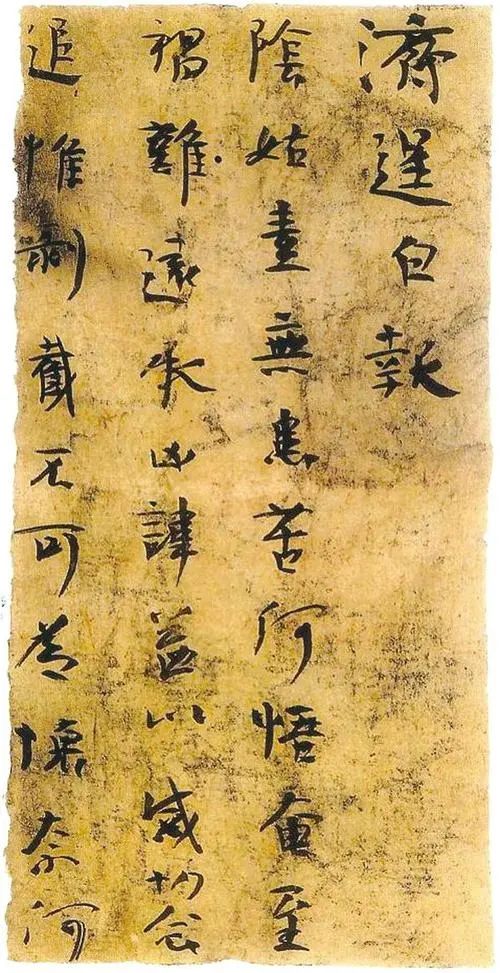 濟逞白報
陰姑無患苦何悟奄至
禍難遠承凶諱益以感切念
追惟剝截无可為懷奈何